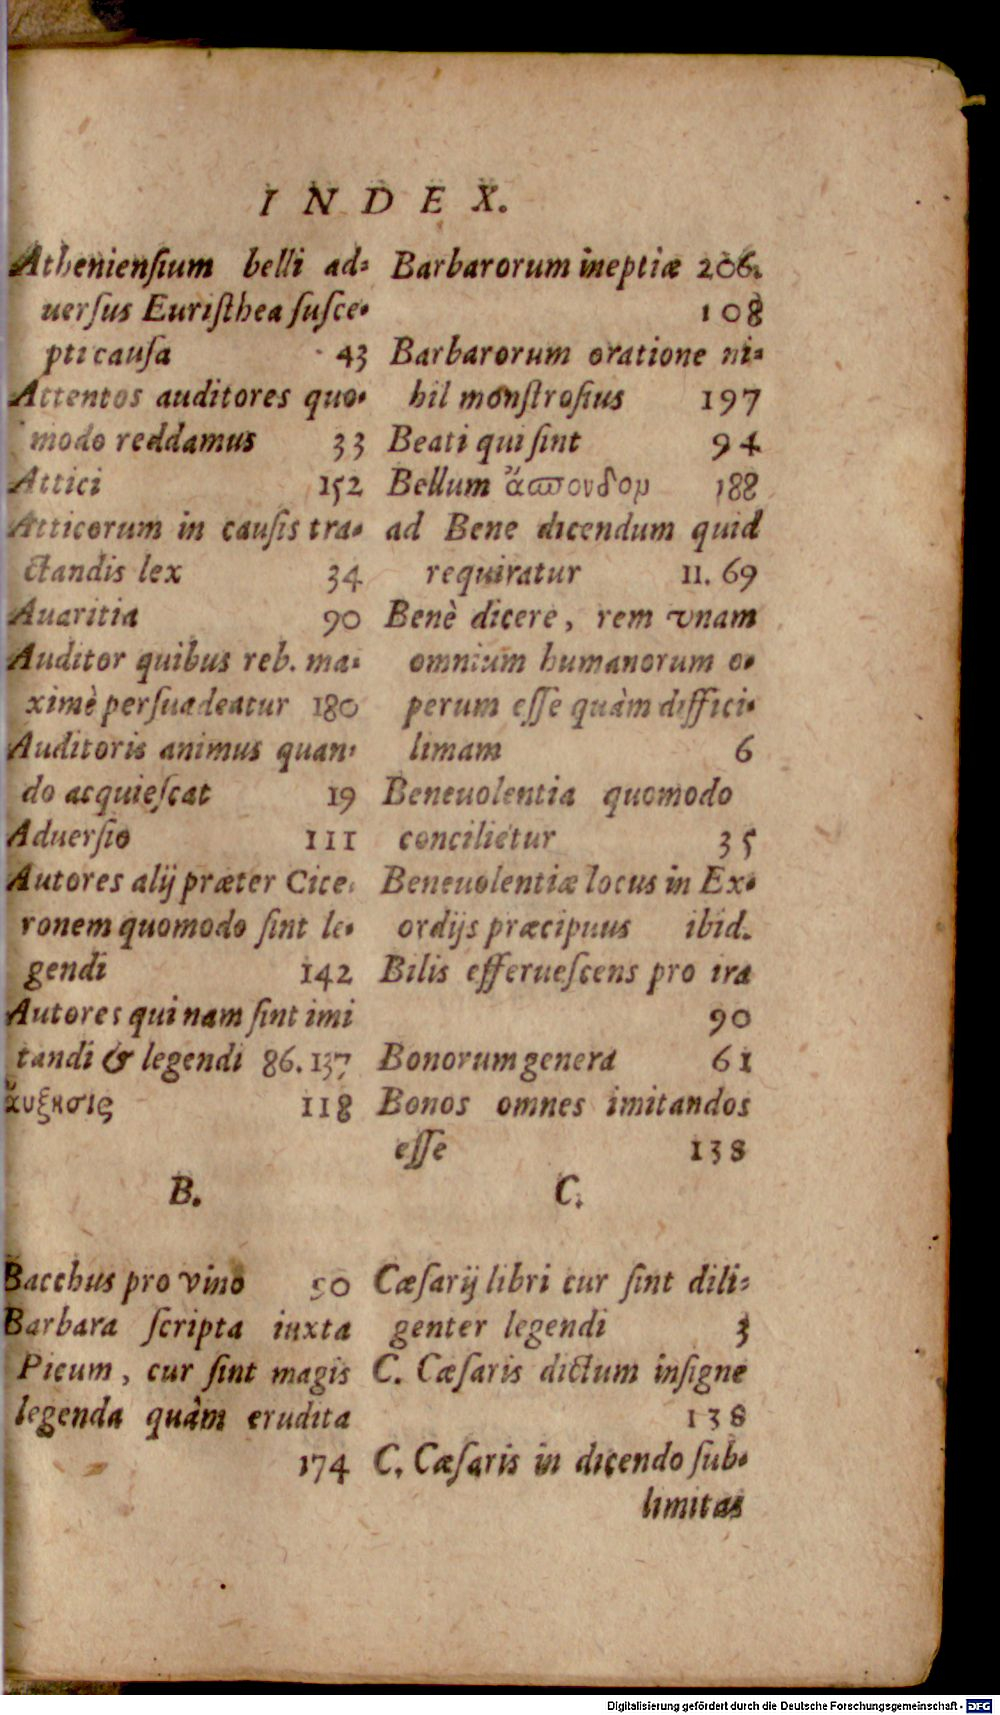 INDEX.
Atheniensium belli ad-
uersus Euristhea susce-
pti causa 43
Attentos auditores quo-
modo reddamus 33
Attici 152
Atticorum in causis tra-
ctandis lex 34
Auaritia 90
Auditor quibus reb. ma-
ximè persuadeatur 180
Auditoris animus quan-
do acquiescat 19
Aduersio 111
Autores alij præter Cice-
ronem quomodo sint le-
gendi 142
Autores qui nam sint imi
tandi & legendi 86. 137
ἄυξησις 118
B.
Bacchus pro vino 50
Barbara scripta iuxta
Picum, cur sint magis
legenda quàm erudita
174
Barbarorum ineptiæ 206.
108
Barbarorum oratione ni-
hil monstrosius 197
Beati qui sint 94
Bellum ἄσπονδον 188
ad Bene dicendum quid
requiratur 11. 69
Benè dicere, rem vnam
omnium humanorum o-
perum esse quàm diffici-
limam 6
Beneuolentia quomodo
concilietur 35
Beneuolentiæ locus in Ex-
ordijs præcipuus ibid.
Bilis efferuescens pro ira
90
Bonorum genera 61
Bonos omnes imitandos
esse 138
C.
Cæsarij libri cur sint dili-
genter legendi 3
C. Cæsaris dictum insigne
138
C. Cæsaris in dicendo sub-
limitas
Digitalisierung gefördert durch die Deutsche Forschungsgemeinschaft - DFG